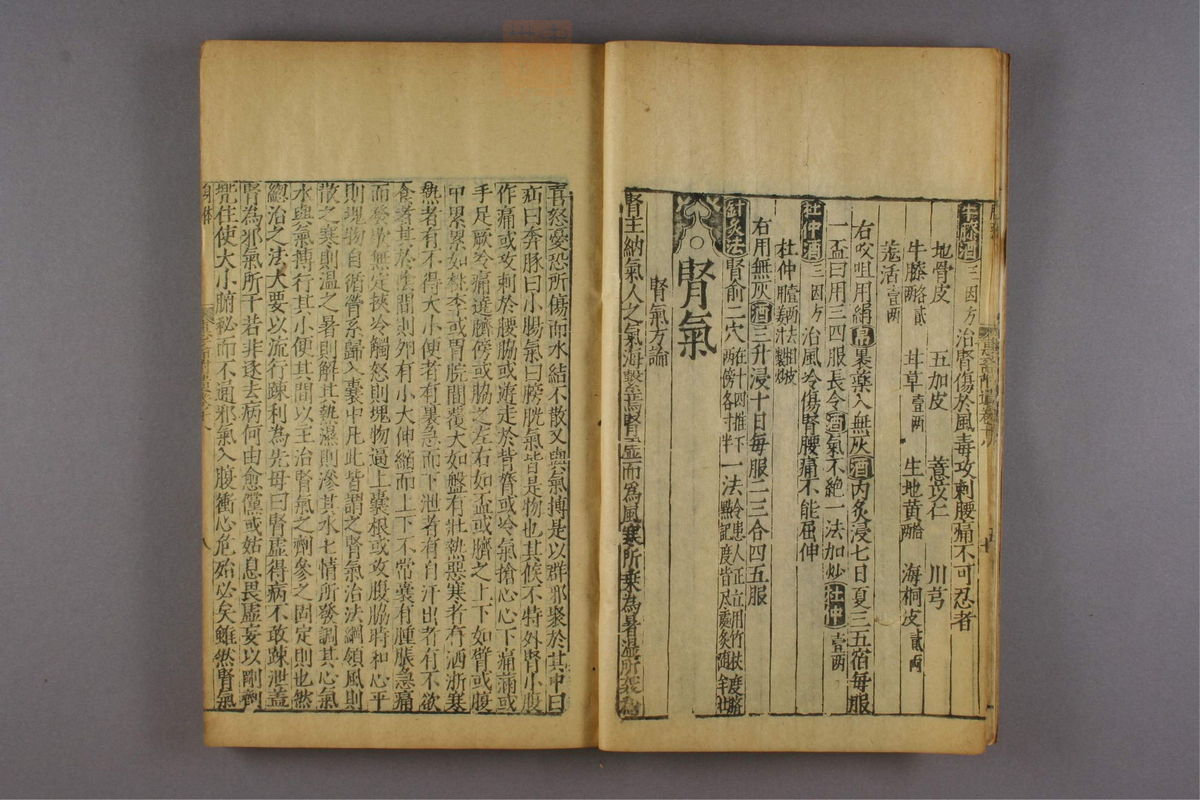 牛膝酒 三因方 治腎傷於風毒攻刺腰痛不可忍者
地骨皮 五加皮 薏苡仁 川芎
牛膝 甘草壹兩 生地黄 海桐皮貳兩
羗活壹兩
右㕮咀用絹帛裹藥入無灰酒内炙浸七日夏三五宿每服
一盃日用三四服長令酒氣不絶一法加炒杜仲壹兩
杜仲酒 三因方 治風冷傷腎腰痛不能屈伸
杜仲
右用無灰酒三升浸十日每服二三合四五服
針灸法 腎俞二穴在十四推下兩傍各寸半 一法令患人正立用竹杖度
腎氣
腎氣方論
腎主納氣人之氣海繫焉腎虛而爲風寒所乗為暑濕所
喜怒憂恐所傷而水結不散又與氣搏是以群邪聚於其中曰
疝曰奔豚曰小腸氣曰膀胱氣皆是物也其候不特外腎小腹
作痛或攻刺於腰脇或遊走於背膂或冷氣搶心心下痛滿或
手足厥冷痛遶臍傍或脇之左右如盃或臍之上下如臂或腹
中累累如桃李或胃脘間覆大如盤有壯熱惡寒者有洒淅寒
熱者有不得大小便者有裏急而下泄者有自汗出者有不欲
食者其於陰間則夘有小大伸縮而上下不常囊有腫脹急痛
而發歇無定挾冷觸怒則塊物逼上囊根或攻腹脇時和心平
則塊物自循循系歸入囊中凡此皆謂之腎氣治法綱領風則
散之寒則温之暑則解其熱濕則滲其水七情所發調其心氣
水與氣搏行其小便其間以主治腎氣之劑參之固定則也然
總治之法大要以流行疎利為先毋曰腎虛得病不敢疎泄蓋
腎為邪氣所干若非逐去病何由愈儻或姑息畏虛妄以剛劑
兠住使大小腑秘而不通邪氣入腹衝心危殆必矣雖然腎氣
八